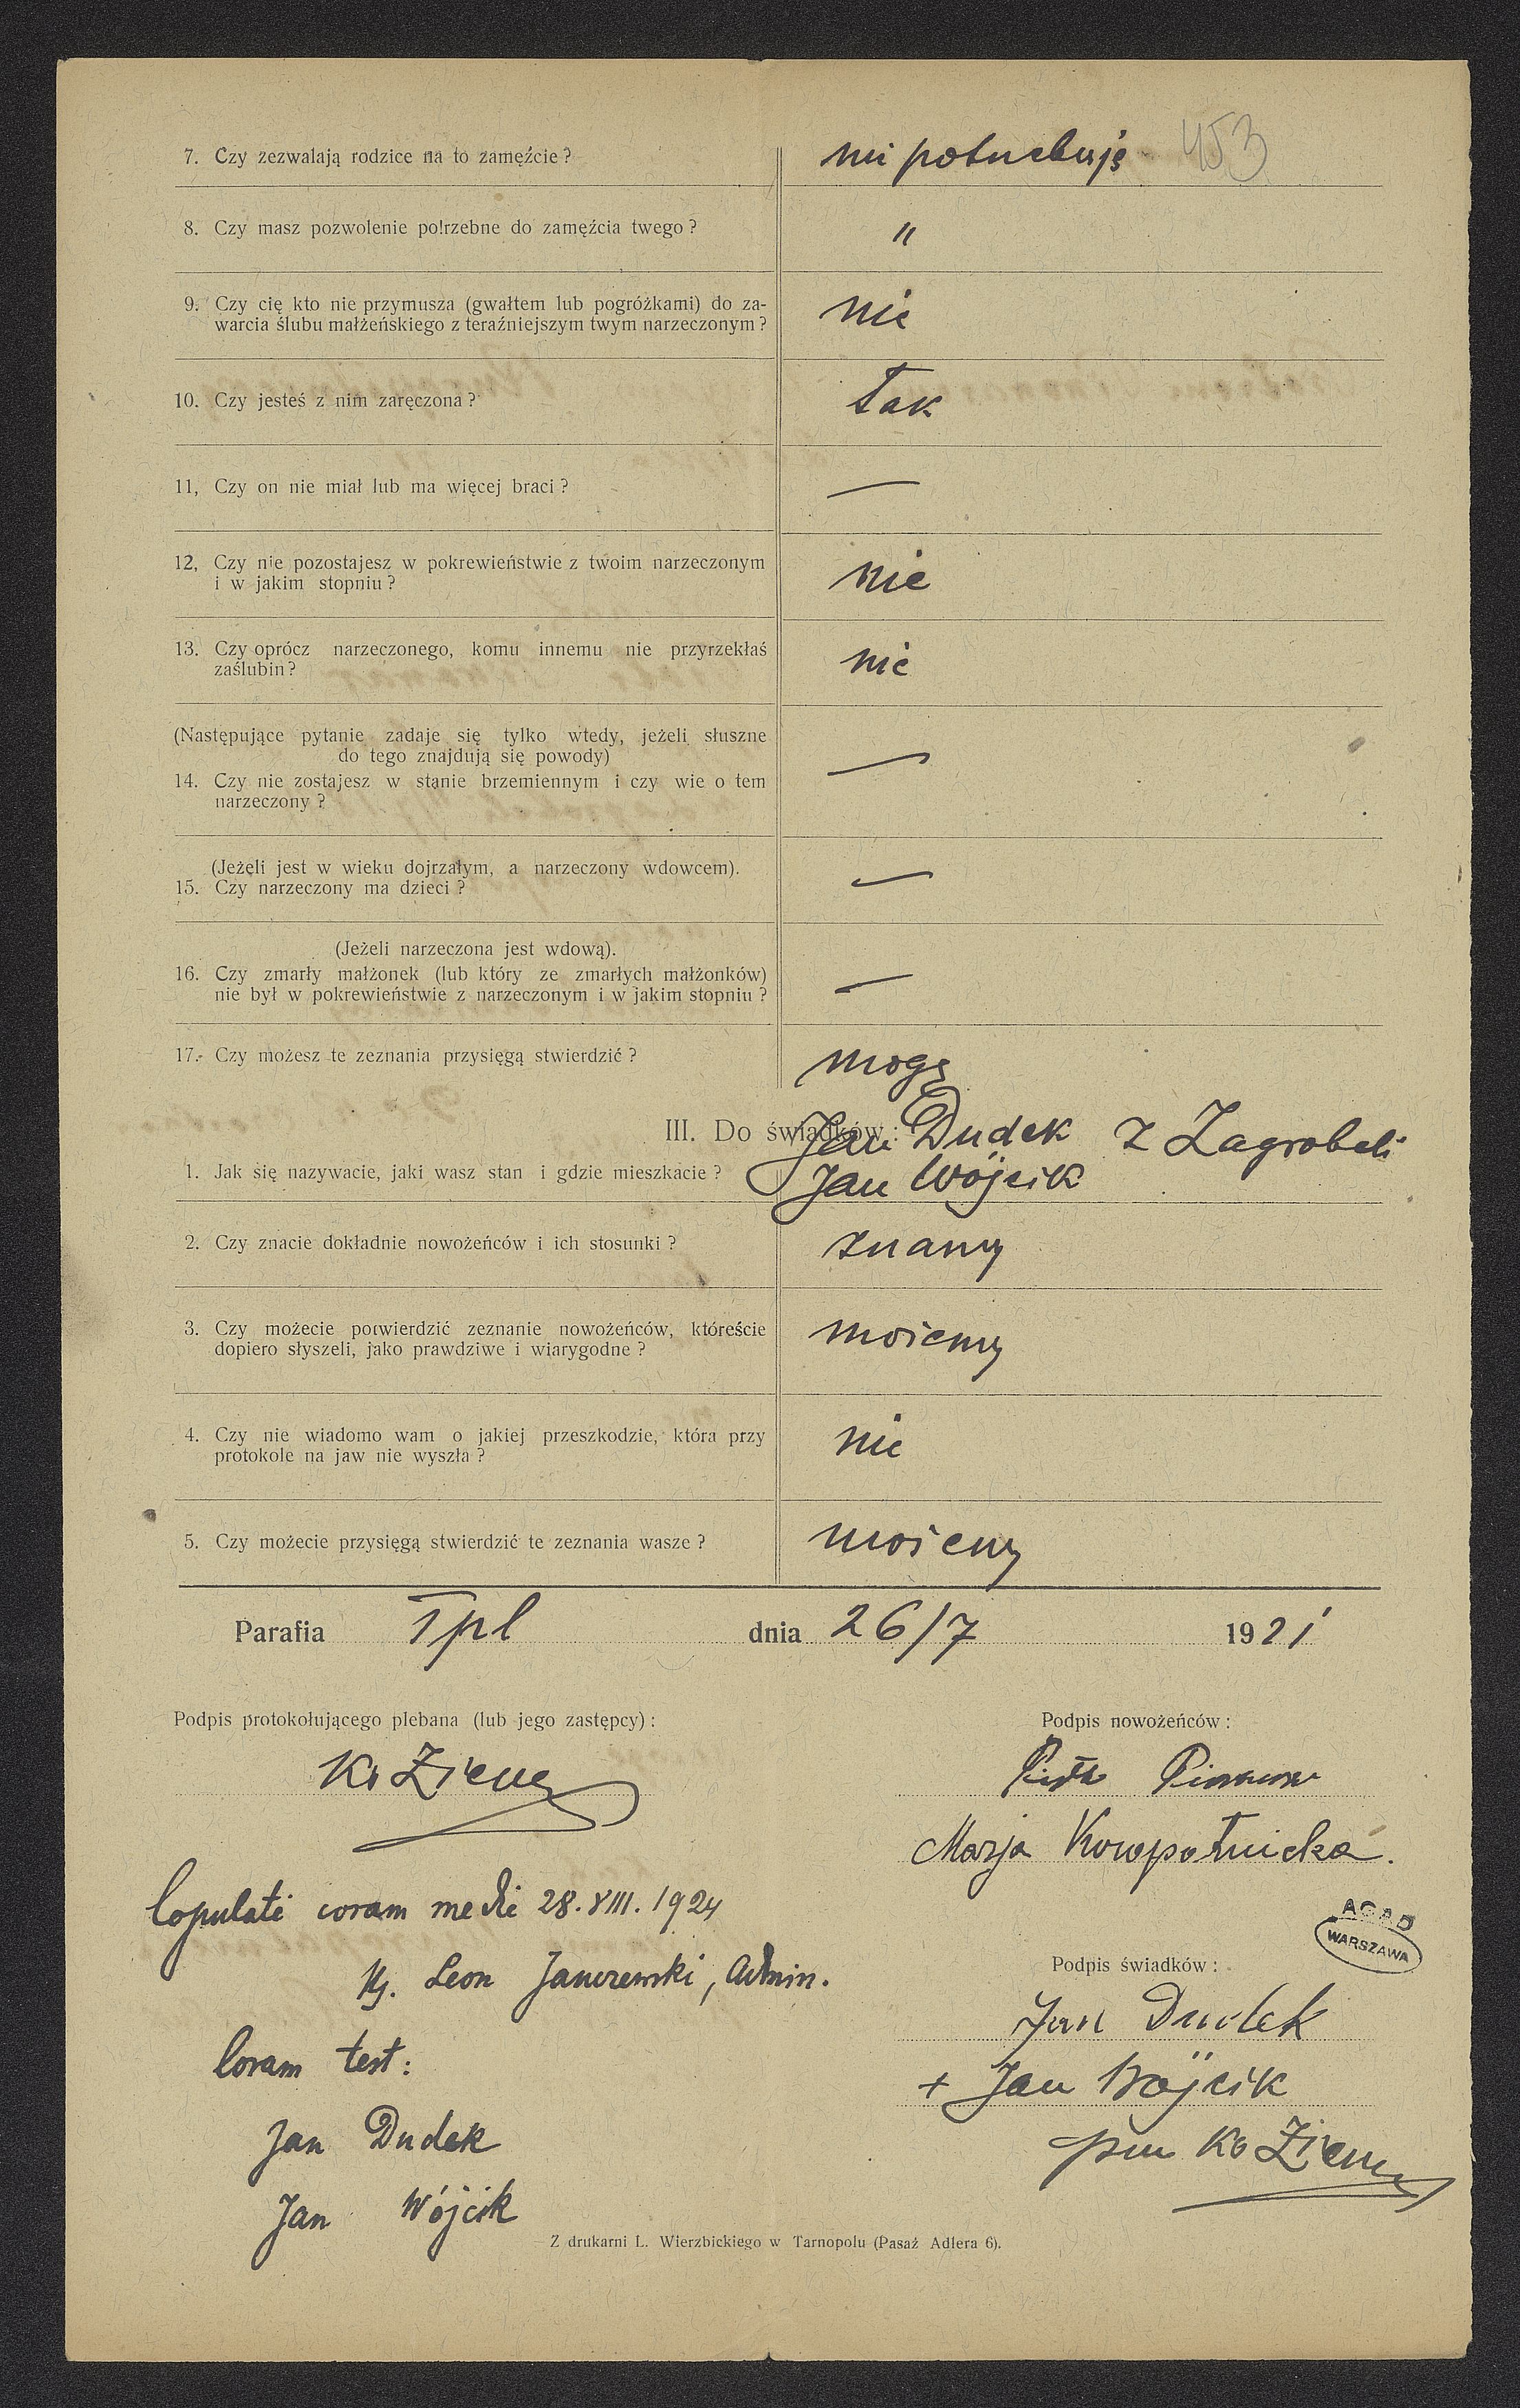 453
7. Czy zezwalają rodzice na to zamęźcie? nie potrzebuję
8. Czy masz pozwolenie potrzebne do zamęźcia twego? "
9. Czy cię kto nie przymusza (gwałtem lub pogróżkami) do za-
warcia ślubu małżeńskiego z teraźniejszym twym narzeczonym? nie
10. Czy jesteś z nim zaręczona? Tak
11, Czy on nie miał lub ma więcej braci? —
12, Czy nie pozostajesz w pokrewieństwie z twoim narzeczonym
i w jakim stopniu? nie
13. Czy oprócz narzeczonego, komu innemu nie przyrzekłaś
zaślubin? nie
(Następujące pytanie zadaje się tylko wtedy, jeżeli słuszne
do tego znajdują się powody)
14. Czy nie zostajesz w stanie brzemiennym i czy wie o tem
narzeczony? —
(Jeżeli jest w wieku dojrzałym, a narzeczony wdowcem).
15. Czy narzeczony ma dzieci? —
(Jeżeli narzeczona jest wdową).
16. Czy zmarły małżonek (lub który ze zmarłych małżonków)
nie był w pokrewieństwie z narzeczonym i w jakim stopniu? —
17. Czy możesz te zeznania przysięgą stwierdzić? mogę
III. Do świadków:
Jan Dudek z Zagrobeli
1. Jak się nazywacie, jaki wasz stan i gdzie mieszkacie? Jan Wójcik
2. Czy znacie dokładnie nowożeńców i ich stosunki? znamy
3. Czy możecie potwierdzić zeznanie nowożeńców, któreście
dopiero słyszeli, jako prawdziwe i wiarygodne? możemy
4. Czy nie wiadomo wam o jakiej przeszkodzie, która przy
protokole na jaw nie wyszła? nie
5. Czy możecie przysięgą stwierdzić te zeznania wasze? możemy
Parafia Tpl dnia 26/7 1921
Podpis protokołującego plebana (lub jego zastępcy):
Ks Ziem
Podpis nowożeńców:
Marja Koropotnicka.
Copulati coram me die 28.VIII.1924
Ks. Leon Janczewski, Admin.
Coram test:
Jan Dudek
Jan Wójcik
AGAD
WARSZAWA
Podpis świadków:
Jan Dudek
+ Jan Wójcik
Ks Ziem
Z drukarni L. Wierzbickiego w Tarnopolu (Pasaż Adlera 6).